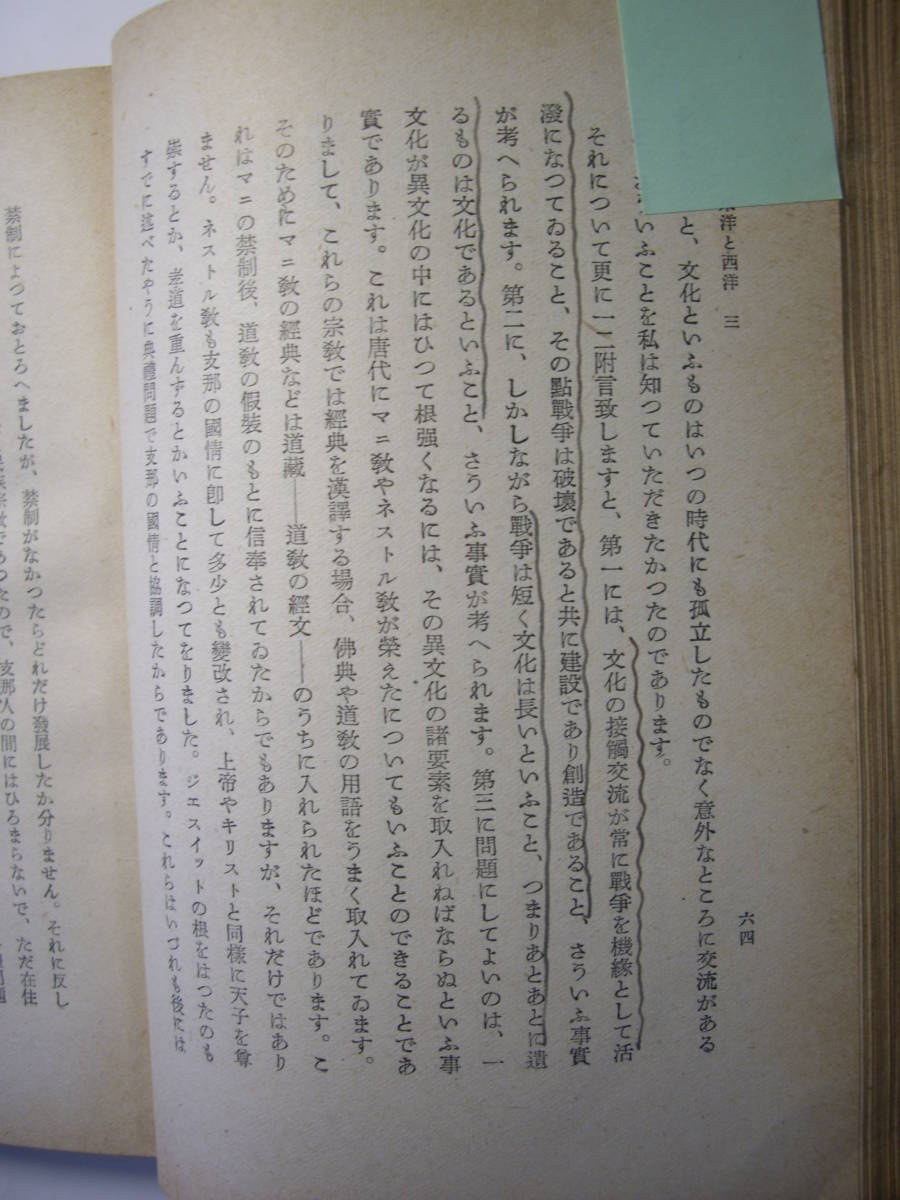 洋と西洋 三
六四
と、文化といふものはいつの時代にも孤立したものでなく意外なところに交流がある
いふことを私は知つていただきたかつたのであります。
それについて更に一二附言致しますと、第一には、文化の接觸交流が常に戰爭を機緣として活
潑になつてゐること、その點戰爭は破壞であると共に建設であり創造であること、さういふ事實
が考へられます。第二に、しかしながら戰爭は短く文化は長いといふこと、つまりあとあとに遺
るものは文化であるといふこと、さういふ事實が考へられます。第三に問題にしてよいのは、一
文化が異文化の中にはひつて根强くなるには、その異文化の諸要素を取入れねばならぬといふ事
實であります。これは唐代にマニ敎やネストル敎が榮えたについてもいふことのできることであ
りまして、これらの宗敎では經典を漢譯する場合、佛典や道敎の用語をうまく取入れてゐます。
そのためにマニ敎の經典などは道藏――道敎の經文――のうちに入れられたほどであります。こ
れはマニの禁制後、道敎の假裝のもとに信奉されてゐたからでもありますが、それだけではあり
ません。ネストル敎も支那の國情に卽して多少とも變改され、上帝やキリストと同樣に天子を尊
崇するとか、孝道を重んずるとかいふことになつてをりました。ジェスイットの根をはつたのも
すでに述べたやうに典禮問題で支那の國情と協調したからであります。これらはいづれも後には
禁制によつておとろへましたが、禁制がなかつたらどれだけ發展したか分りません。それに反し
宗敎であつたので、支那人の間にはひろまらないで、ただ在住